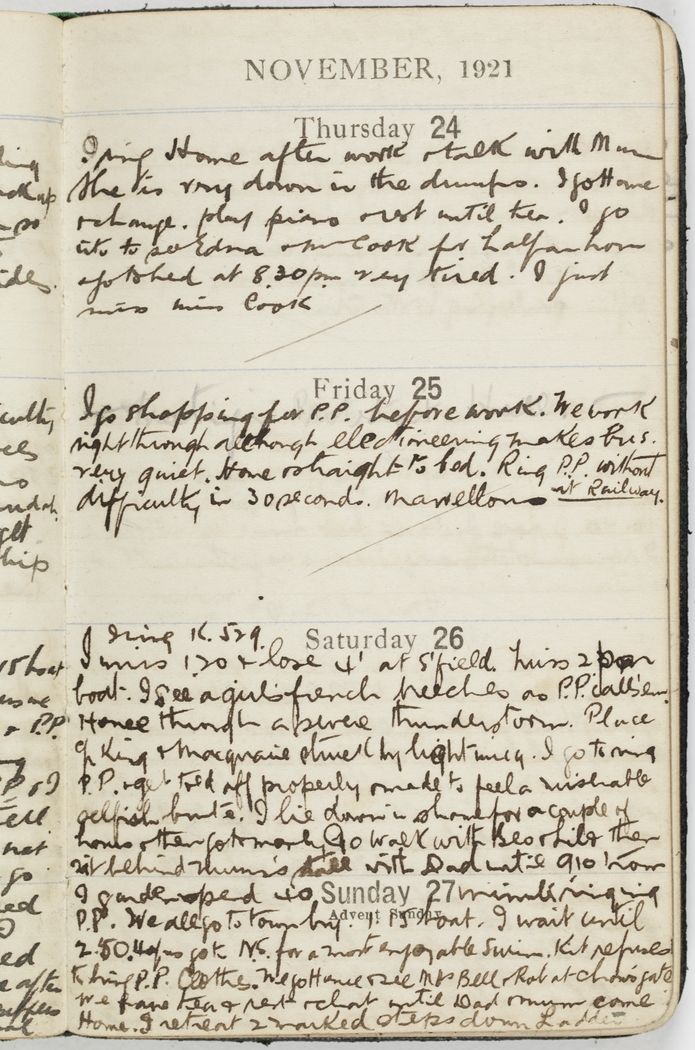 NOVEMBER, 1921
Thursday 24
I ring Home after work & talk with Mum
She is very down in the dumps. I go Home
& change. play piano & rest until tea. I go
to see Edna & Mr Cook for half an hour
& go to bed at 8.30pm very tired. I just
miss miss Cook
Friday 25
I go shopping for P.P. before work. We work
right through although electioneering makes bus.
very quiet. Home & straight to bed. Ring P.P. without
difficulty in 30 seconds. Marvellous
at Railway.
I ring K. 529.
Saturday 26
I miss 1 20 & lose 4' at S'field. Miss 2 pm
boat. I see a girls french breeches as P.P. calls em.
Home through a severe thunderstorm. Place
of King & Macquarie struck by lightning. I go to ring
P.P. & get told off properly & made to feel a miserable
selfish brute. I lie down in shame for a couple of
hours & then go to Manly. Go walk with Bes & Lil & then
sit behind mum's stall with Dad until 910 from
Sunday 27
Advent Sunday
I garden & spend minutes ringing
P.P. We all go to town by 1.15 boat. I wait until
2.50. go to N.S. for a most enjoyable swim. Kit refuses
to bring P.P. Clothes. We go Home & see Mrs Bell & Rob at Chows gate
We have tea & rest & chat until Dad & mum come
Home. I retreat 2 marked steps down Ladder